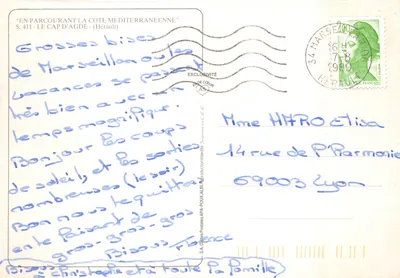 "EN PARCOURANT LA COTE MEDITERRANEENNE"
S. 411 - LE CAP D'AGDE - (Hérault)
Grosses bises
de Marseillan où les
vacances se passent
très bien avec un
temps magnifique.
Bonjour les coups
de soleils et les sorties
nombreuses (le soir)
Bon nous te quittons
en te faisant de
gros-gros-gros
Bisous Florence
Bisous à Christophe et à toute la famille
34 MARSEILLAN
16 H
7-8
1989
HERAULT
Mme HARO Elisa
14 rue de P'Harmonie
69003 Lyon